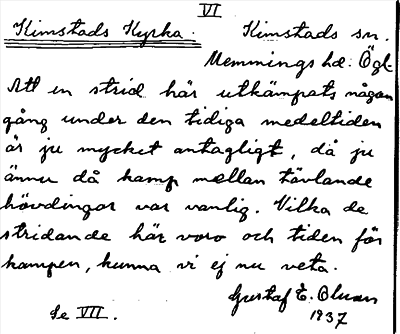 VI
Kimstads Kyrka. Kimstads sn.
Memmings hd: Ögl.
Att en strid här utkämpats någon
gång under den tidiga medeltiden
är ju mycket antagligt, då ju
ännu då kamp mellan tävlande
hövdingar var vanlig. Vilka de
stridande här voro och tiden för
kampen, kunna vi ej nu veta.
Gustaf E. Olsson
Se VII. 1937